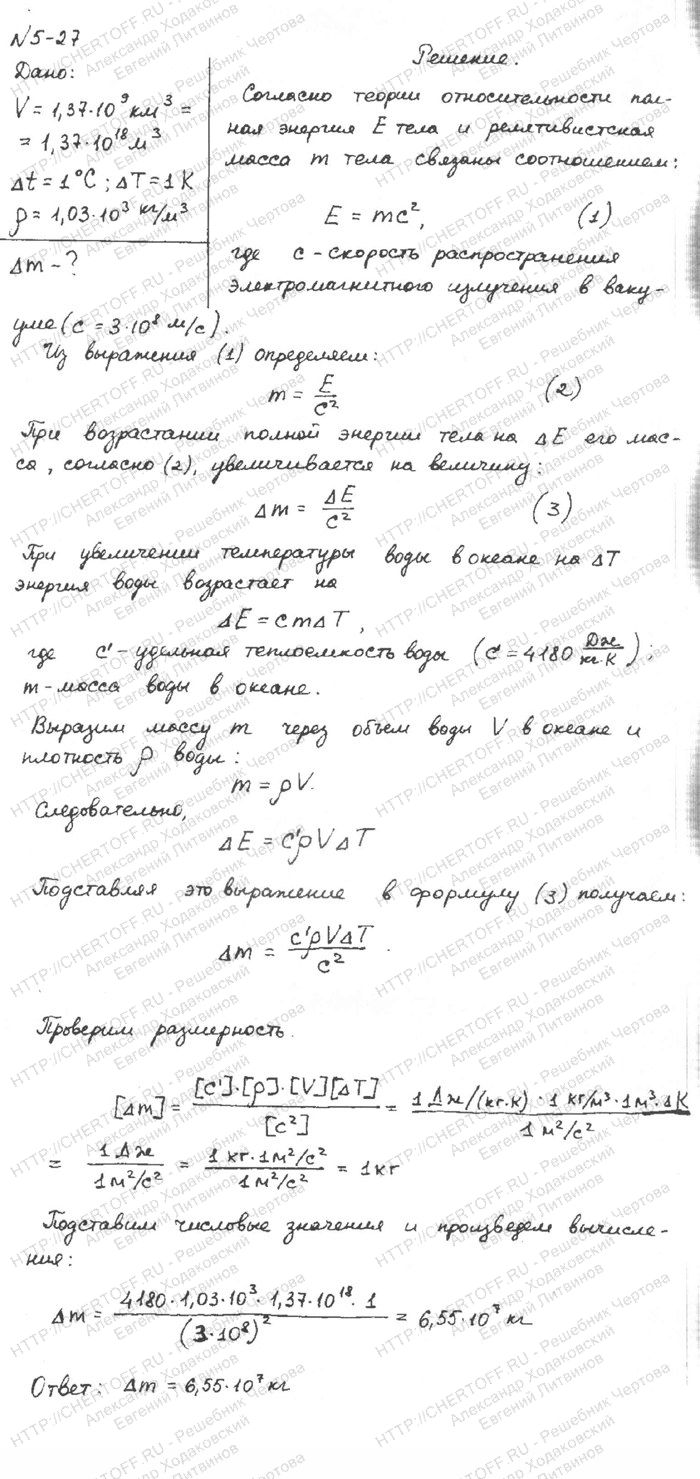 N5-27
Дано:
V = 1,37·10⁹ км³ =
= 1,37·10¹⁸ м³
Δt = 1°C ; ΔT = 1 К
ρ = 1,03·10³ кг/м³
Δm - ?
Решение.
Согласно теории относительности пол-
ная энергия E тела и релятивистская
масса m тела связаны соотношением:
E = mc², (1)
где c - скорость распространения
электромагнитного излучения в ваку-
уме (c = 3·10⁸ м/с).
Из выражения (1) определяем:
m = E/c² (2)
При возрастании полной энергии тела на ΔE его мас-
са, согласно (2), увеличивается на величину:
Δm = ΔE/c² (3)
При увеличении температуры воды в океане на ΔT
энергия воды возрастает на
ΔE = cmΔT,
где c' - удельная теплоемкость воды (c' = 4180 Дж/кг·К);
m - масса воды в океане.
Выразим массу m через объем воды V в океане и
плотность ρ воды:
m = ρV.
Следовательно,
ΔE = c'ρVΔT
Подставляя это выражение в формулу (3) получаем:
Δm = c'ρVΔT/c².
Проверим размерность.
[Δm] = [c']·[ρ]·[V][ΔT]/[c²] = 1 Дж/(кг·К)·1 кг/м³·1м³·1К/1 м²/с²
= 1 Дж/1 м²/с² = 1 кг·1м²/с²/1м²/с² = 1кг
Подставим числовые значения и произведем вычисле-
ния:
Δm = 4180·1,03·10³·1,37·10¹⁸·1/(3·10⁸)² = 6,55·10⁷ кг
Ответ: Δm = 6,55·10⁷ кг
HTTP://CHERTOFF.RU - Решебник Чертова
Александр Ходаковский
Евгений Литвинов